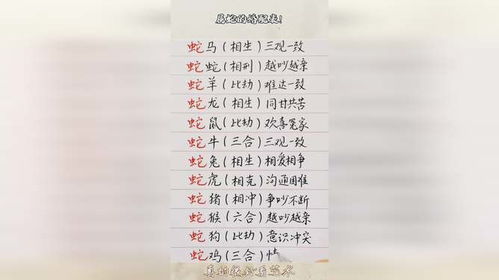 属蛇的婚配表!
蛇马(相生)三观一致
蛇蛇(相刑)越吵越亲
蛇羊(比劫)难达一致
蛇龙(相生)同甘共苦
蛇鼠(比劫)欢喜冤家
蛇牛(三合)三观一致
蛇兔(相生)相爱相争
蛇虎(相克)沟通困难
蛇猪(相冲)争吵不断
蛇猴(六合)越吵越亲
蛇狗(比劫)意识冲突
蛇鸡(三合)